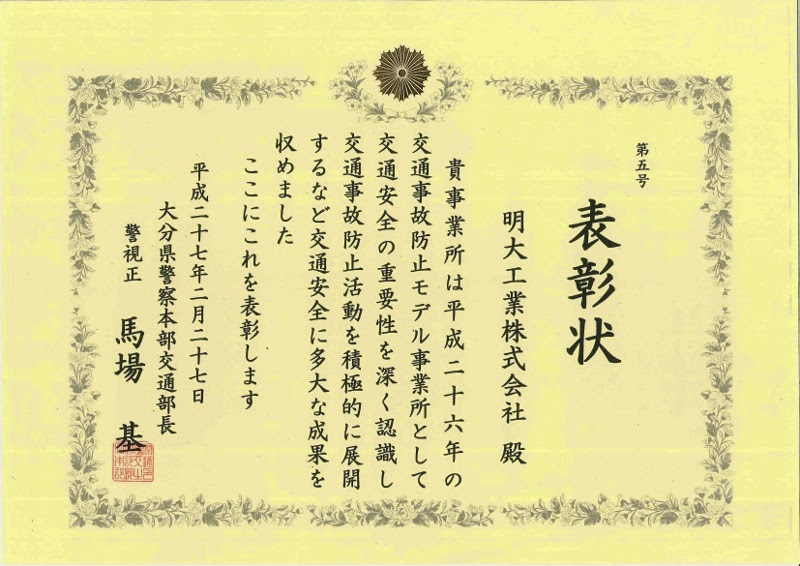 第五号
表彰状
明大工業株式会社 殿
貴事業所は平成二十六年の
交通事故防止モデル事業所として
交通安全の重要性を深く認識し
交通事故防止活動を積極的に展開
するなど交通安全に多大な成果を
収めました
ここにこれを表彰します
平成二十七年二月二十七日
大分県警察本部交通部長
警視正 馬場 基